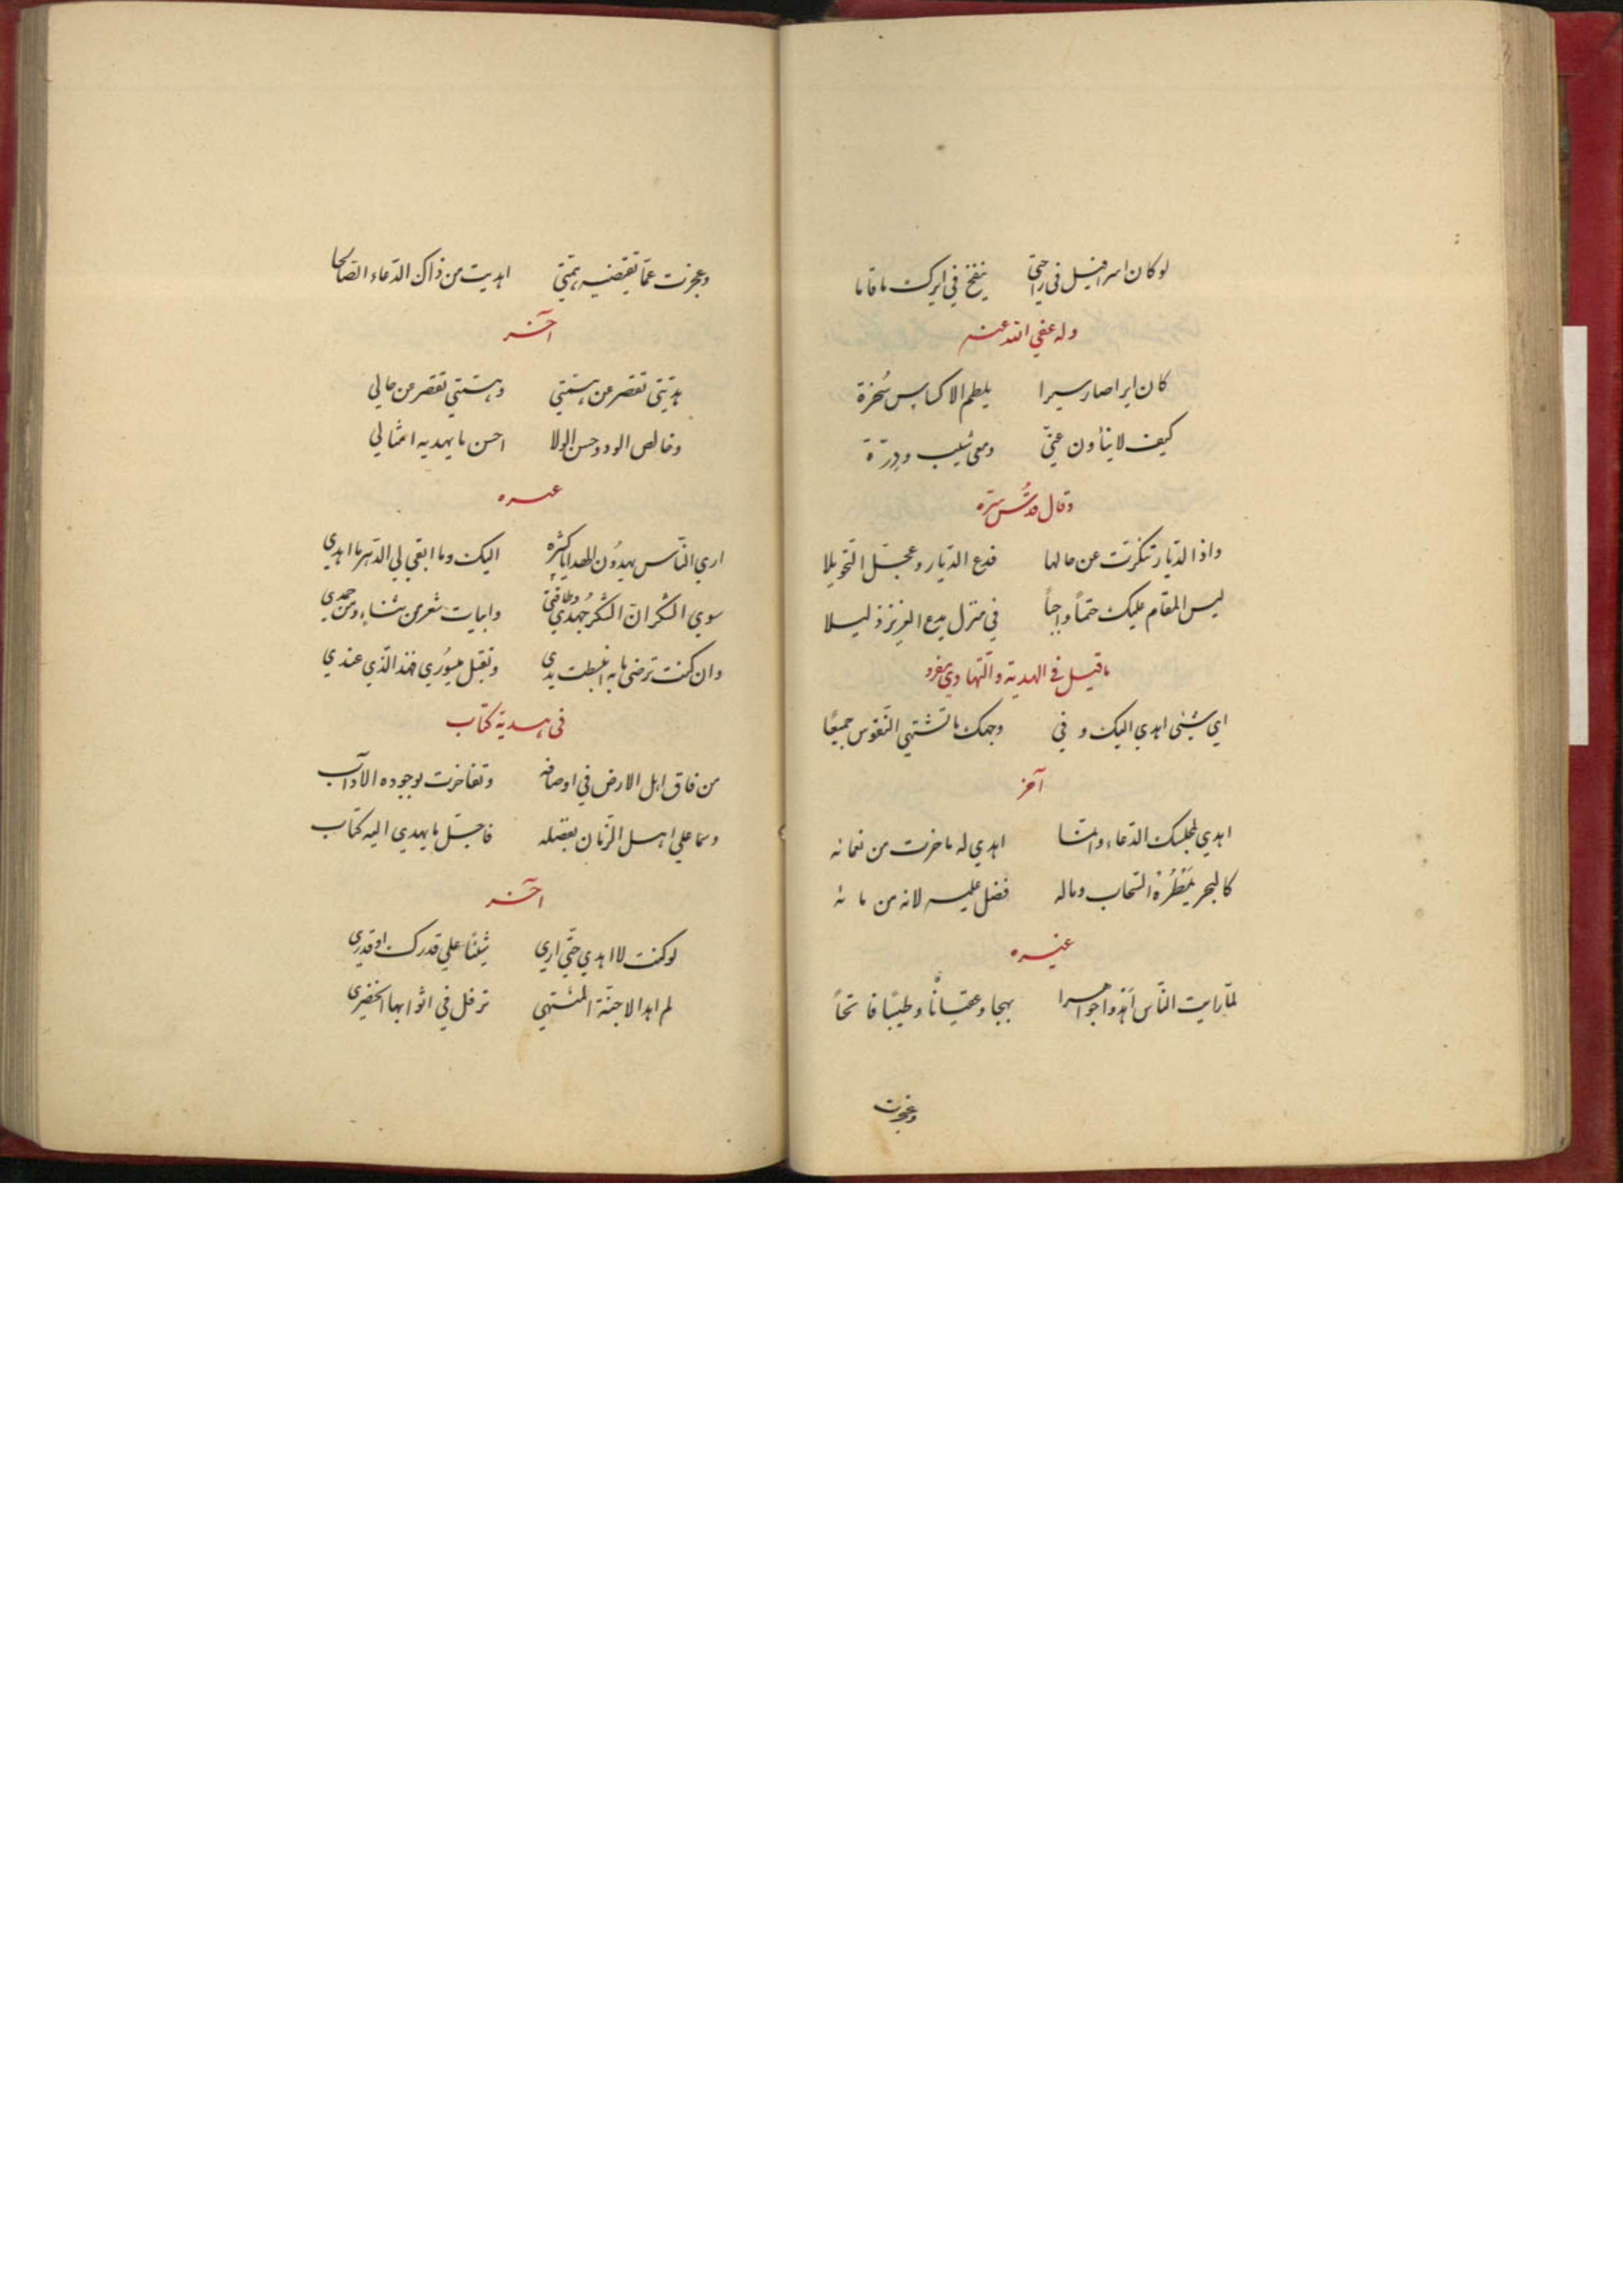 لو كان اسرافيل في راحتي ينفخ في ايرك ما قاما
وله عفي الله عنه
كان ايرا صار سيرا يلطم الاكساس سُخرة
كيف لا ينأون عنّي ومعي شيب ودِرّة
وقال قدّس سرّه
واذا الدّيار تنكّرت عن حالها فدع الدّيار وعجّل التّحويلا
ليس المقام عليك حتماً واجباً في منزل يدع العزيز ذليلا
ما قيل في الهدية والتّهادي مفرد
اي شيئ اهدي اليك و في وجهك ما تشتهي النّفوس جميعًا
آخر
اهدي لمجلسك الدّعاء وانّما اهدي له ما خرت من نعمائه
كالبحر يَمْطُرُهْ السّحاب وما له فضل عليه لانه من مائه
غيره
لمّا رايت النّاس اهدوا جوهرا بهجا وعقيانًا وطيبًا فاتحاً
وعجزت
وعجزت عمّا تقتضيه همّتي اهديت من ذاك الدّعاء الصّالحا
آخر
هديّتي تقصر من همّتي وهمّتي تقصر من حالي
وخالص الود وحسن الولا احسن ما يهديه امثالي
غيره
اري النّاس يهدُون الهدايا كثيره اليك وما ابقي لي الدّهر ما اهدي
سوي الشكر ان الشكر جُهدي وطاقتي وابيات شعر من ثناء ومن حمدي
وان كنت ترضى ما به انبسطت يدي وتقبل ميسُوري فهذا الّذي عندي
في هدية كتاب
من فاق اهل الارض في اوصافه وتفاخرت بوجوده الآداب
وسما علي اهل الزّمان بفضله فاجلّ ما يهدي اليه كتاب
آخر
لو كنت لا اهدي حتّي اري شيئًا علي قدرك او قدري
لم اهد الا جنّة المنتهي ترفل في اثوابها الخضري